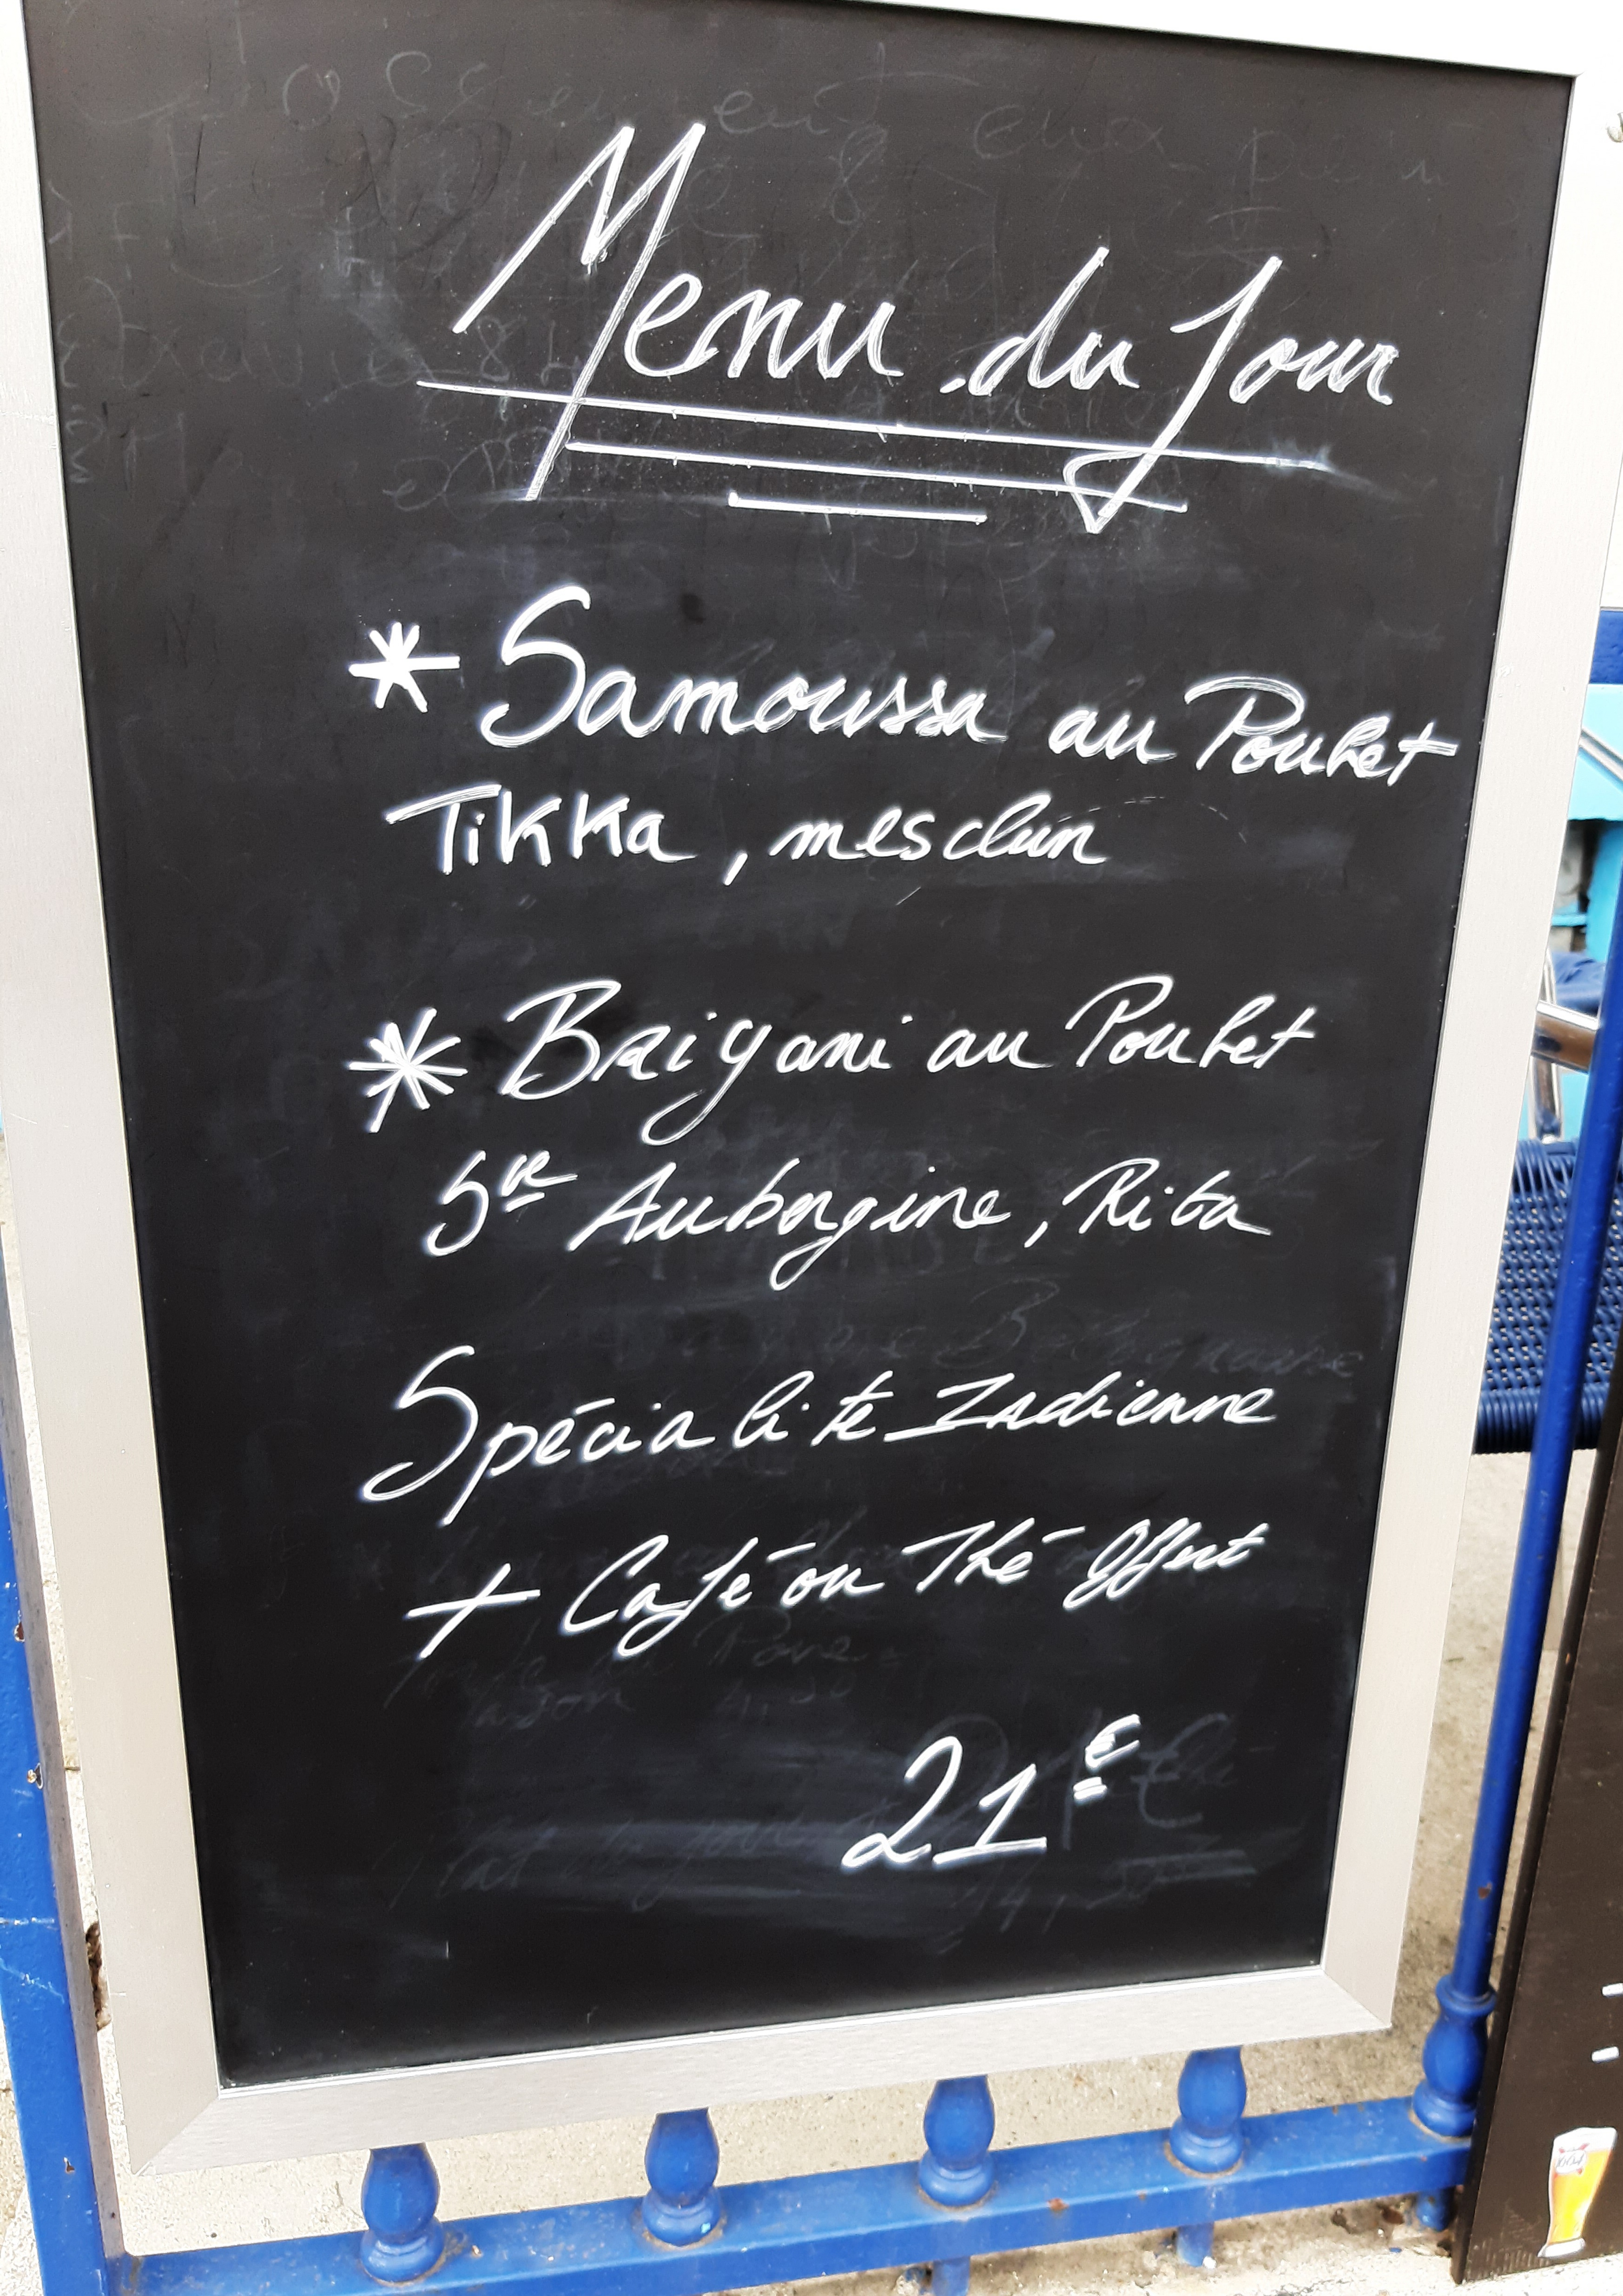 Menu du Jour
* Samoussa au Poulet
Tikka, mesclun
* Briyani au Poulet
Sce Aubergine, Rita
Spécialité Indienne
+ Café ou Thé Offert
21€